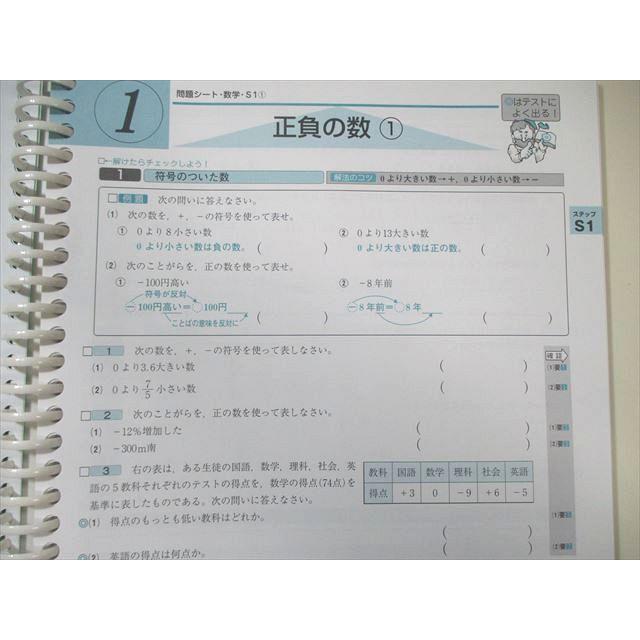 1
問題シート・数学・S1①
正負の数 ①
◎はテストに
よく出る！
□←解けたらチェックしよう！
1 符号のついた数
解法のコツ 0より大きい数→＋，0より小さい数→－
ステップ
S1
□ 例題 次の問いに答えなさい。
(1) 次の数を，＋，－の符号を使って表せ。
① 0より8小さい数 ② 0より13大きい数
0より小さい数は負の数。( ) 0より大きい数は正の数。( )
(2) 次のことがらを，正の数を使って表せ。
① －100円高い ② －8年前
符号が反対
－100円高い＝ 100円 ( ) －8年前＝ 8年 ( )
ことばの意味を反対に
□ 1 次の数を，＋，－の符号を使って表しなさい。
確認
(1) 0より3.6大きい数 ( )
(1)要1
(2) 0より7/5小さい数 ( )
(2)要1
□ 2 次のことがらを，正の数を使って表しなさい。
(1) －12%増加した ( )
(1)要2
(2) －300m南 ( )
(2)要2
□ 3 右の表は，ある生徒の国語，数学，理科，社会，英
語の5教科それぞれのテストの得点を，数学の得点(74点)を
基準に表したものである。次の問いに答えなさい。
教科 国語 数学 理科 社会 英語
得点 ＋3 0 －9 ＋6 －5
◎(1) 得点のもっとも低い教科はどれか。
( )
◎(2) 英語の得点は何点か。
( )